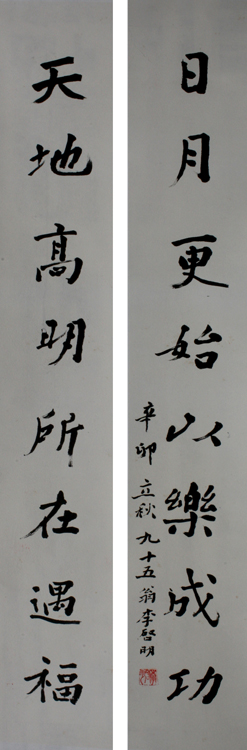 日月更始以樂成功
天地高明所在遇福
辛卯立秋九十五翁李啓明